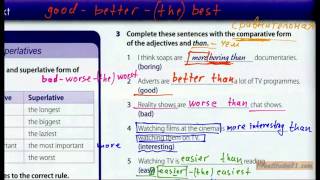 ext
good - better - (the) best
(сравнительная
3 Complete these sentences with the comparative form
of the adjectives and than. - чем
1 I think soaps are more boring than documentaries.
(boring)
2 Adverts are better than a lot of TV programmes.
(good)
3 Reality shows are worse than chat shows.
(bad)
4 Watching films at the cinema is more interesting than
watching them on TV.
(interesting)
5 Watching TV is easier than reading
(easy) easier - (the) easiest
uperlatives
and superlative form of
bad - worse - (the) worst
Superlative
the longest
the biggest
the laziest
the most boring
more
the worst
ct words to the correct rule.